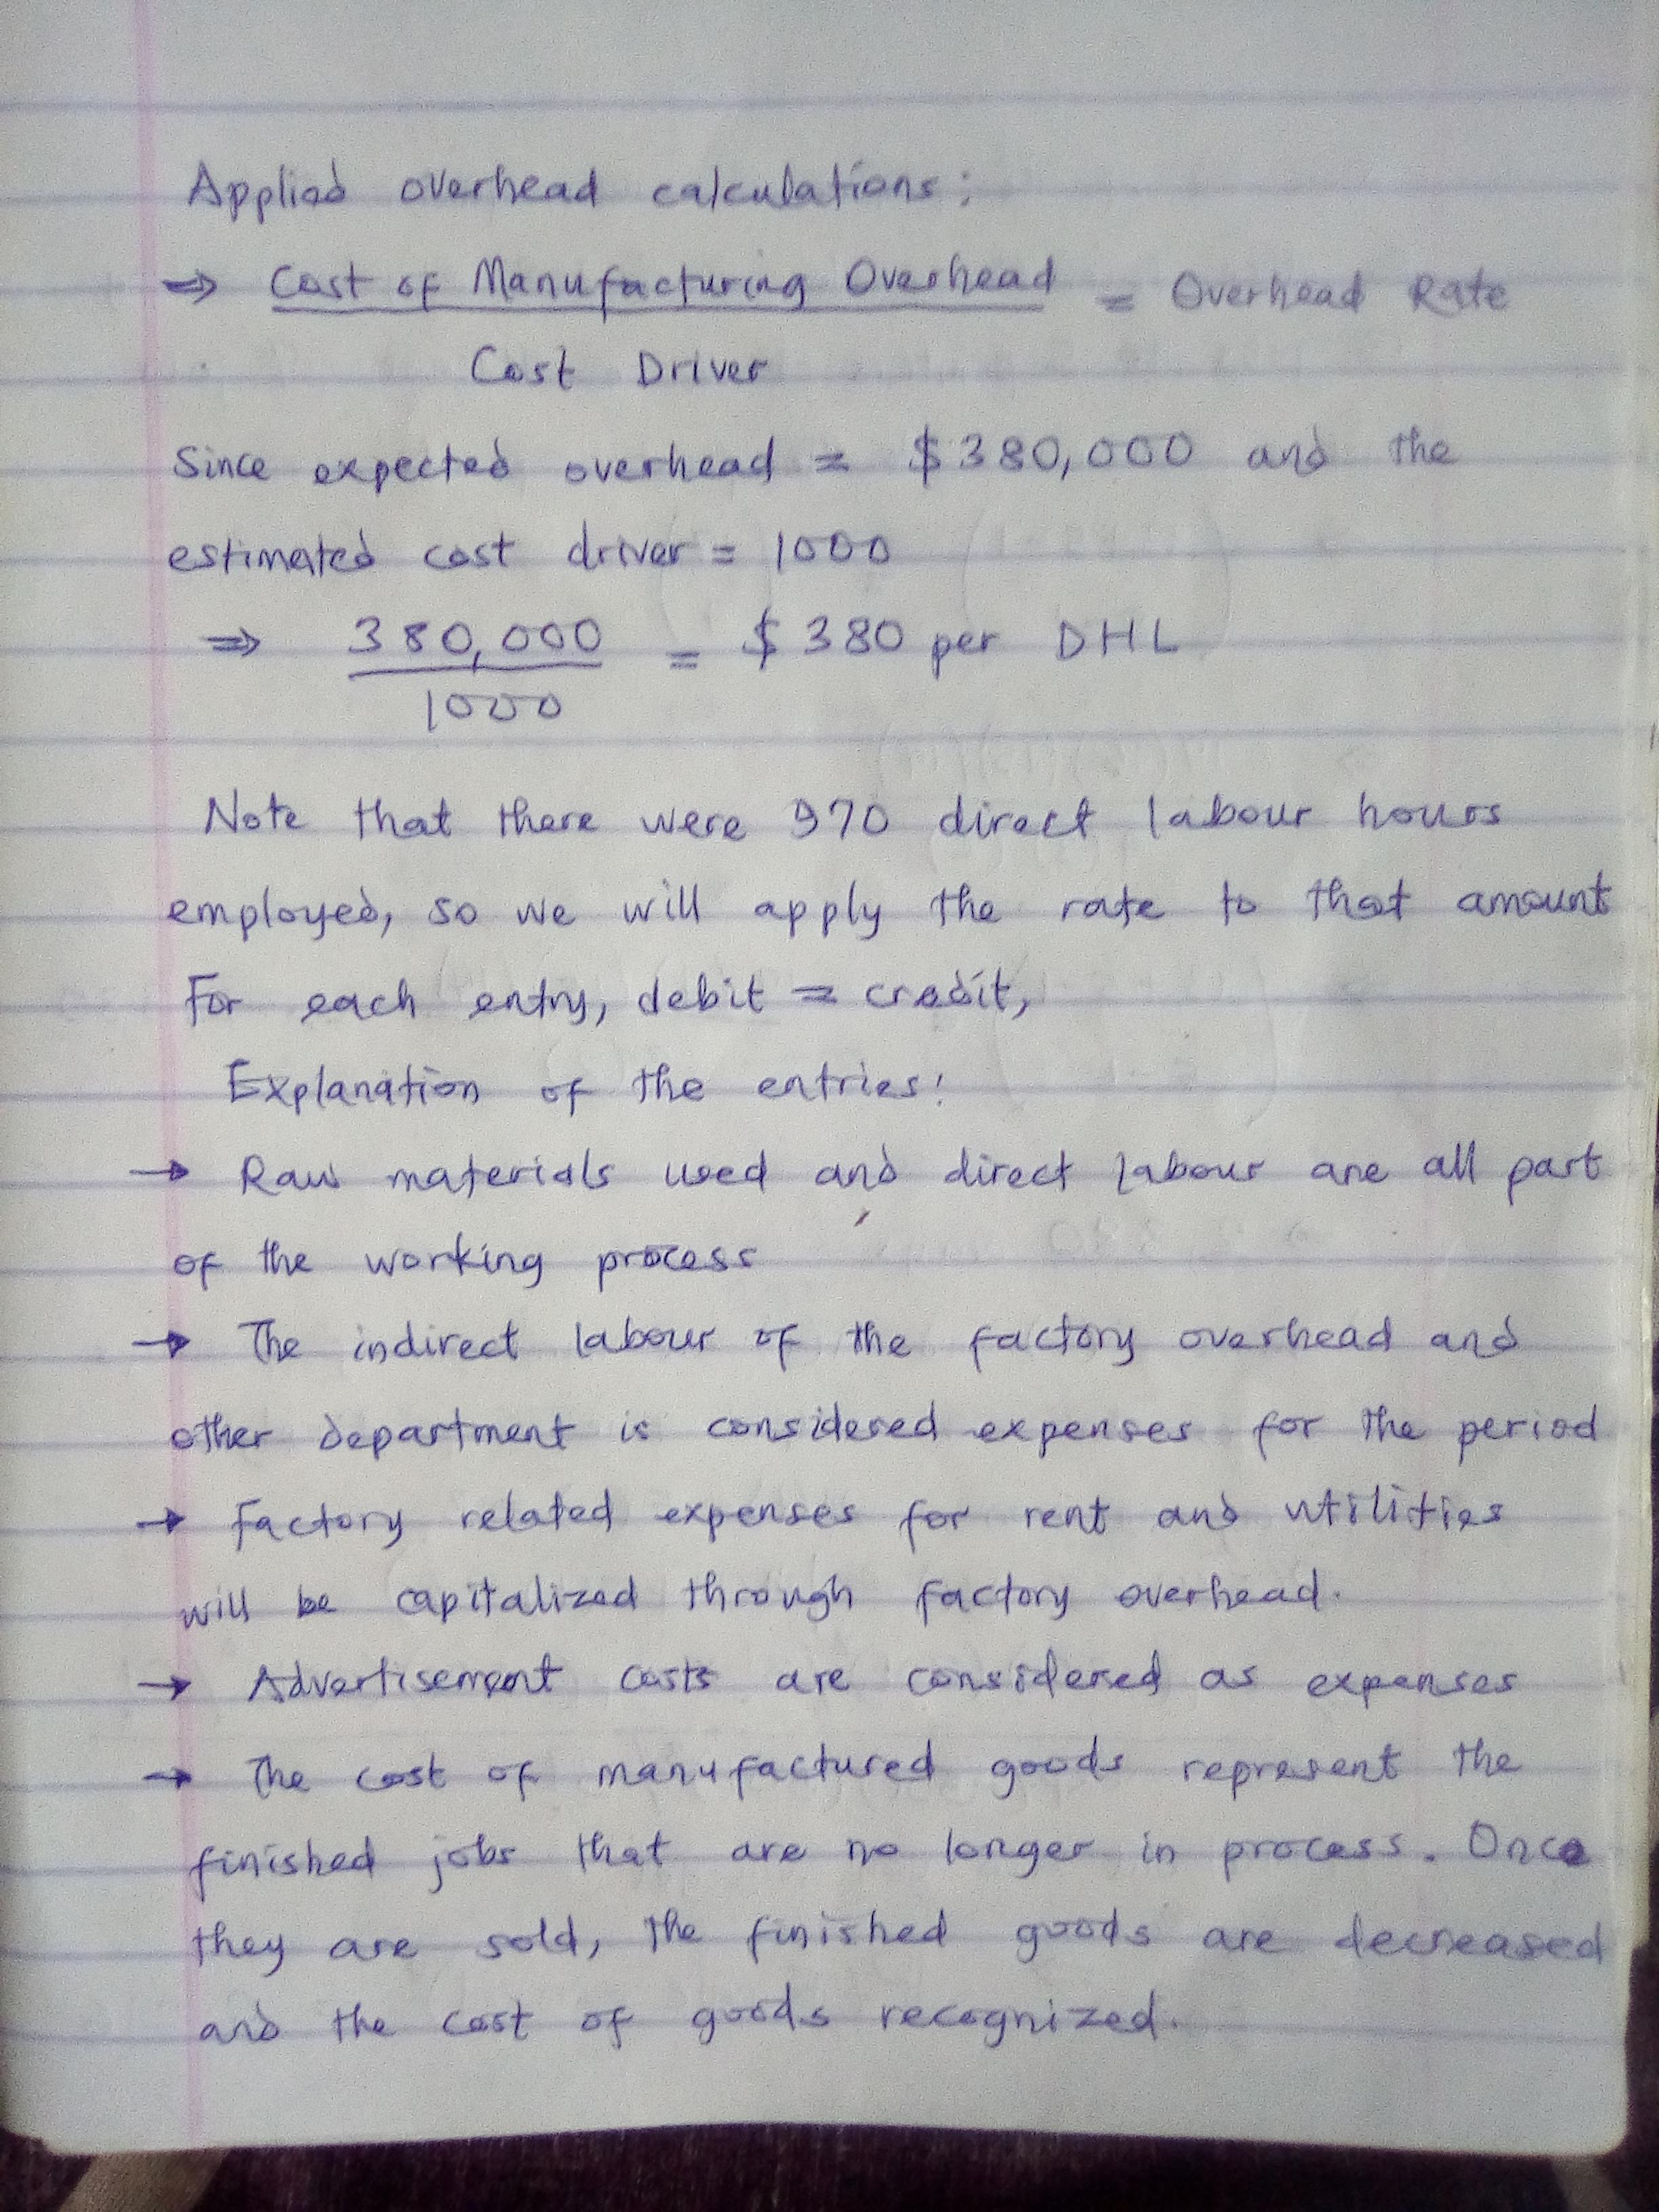 Applied overhead calculations:
⇒ Cost of Manufacturing Overhead = Overhead Rate
Cost Driver
Since expected overhead = $380,000 and the
estimated cost driver = 1000
⇒ 380,000 = $ 380 per DHL
1000
Note that there were 970 direct labour hours
employed, so we will apply the rate to that amount
For each entry, debit = credit,
Explanation of the entries:
→ Raw materials used and direct labour are all part
of the working process
→ The indirect labour of the factory overhead and
other department is considered expenses for the period
→ Factory related expenses for rent and utilities
will be capitalized through factory overhead.
→ Advertisement costs are considered as expenses
→ The cost of manufactured goods represent the
finished jobs that are no longer in process. Once
they are sold, the finished goods are decreased
and the cost of goods recognized.